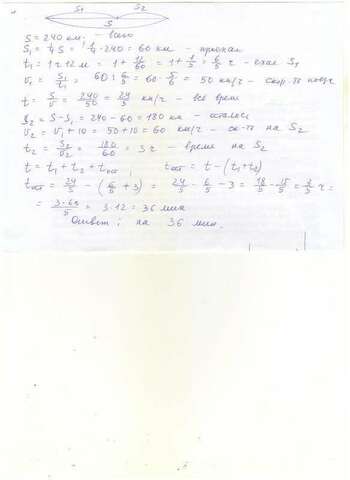 S₁ S₂
S
S = 240 км; - всего
S₁ = ¼ S = ¼ · 240 = 60 км - проехал
t₁ = 1 ч 12 м = 1 + 12/60 = 1 + 1/5 = 6/5 ч - ехал S₁
V₁ = S₁/t₁ = 60 : 6/5 = 60 · 5/6 = 50 км/ч - скор-ть
t = S/V = 240/50 = 24/5 км/ч - все время
S₂ = S - S₁ = 240 - 60 = 180 км - осталось
V₂ = V₁ + 10 = 50 + 10 = 60 км/ч - ск-ть на S₂
t₂ = S₂/V₂ = 180/60 = 3 ч - время на S₂
t = t₁ + t₂ + tост ; tост = t - (t₁ + t₂)
tост = 24/5 - (6/5 + 3) = 24/5 - 6/5 - 3 = 18/5 - 15/5 = 3/5 ч =
= 3·60/5 = 3 · 12 = 36 мин
Ответ: на 36 мин.